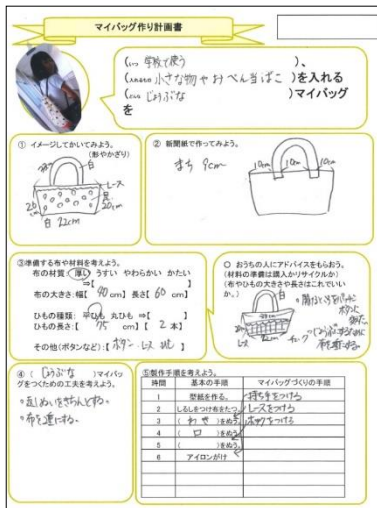 マイバッグ作り計画書
(いつ 学校で使う )、
小さな物やおべん当ばこ )を入れる
じょうぶな )マイバッグ
を
① イメージしてかいてみよう。
(形やかざり)
白
レース
20cm
白 22cm
② 新聞紙で作ってみよう。
まち 9cm
10cm 10cm 10cm
③準備する布や材料を考えよう。
布の材質:厚い うすい やわらかい かたい
⇒【 】
布の大きさ:幅【 40 cm】長さ【 60 cm】
ひもの種類:平ひも 丸ひも ⇒【 】
ひもの長さ:【 75 cm】【 2 本】
その他(ボタンなど):【 ボタン レース
○ おうちの人にアドバイスをもらおう。
(材料の準備は購入かリサイクルか)
(布やひもの大きさや長さはこれでいい
か。)
④ ( じょうぶな )マイバッ
グをつくための工夫を考えよう。
・返しぬいをきちんとする。
・布を二重にする。
⑤製作手順を考えよう。
時間 基本の手順 マイバッグづくりの手順
1 型紙を作る。 持ち手をつける
2 しるしをつけ布をたつ。 レースをつける
3 ( わき )をぬう。
4 ( 口 )をぬう。
5
6 アイロンがけ